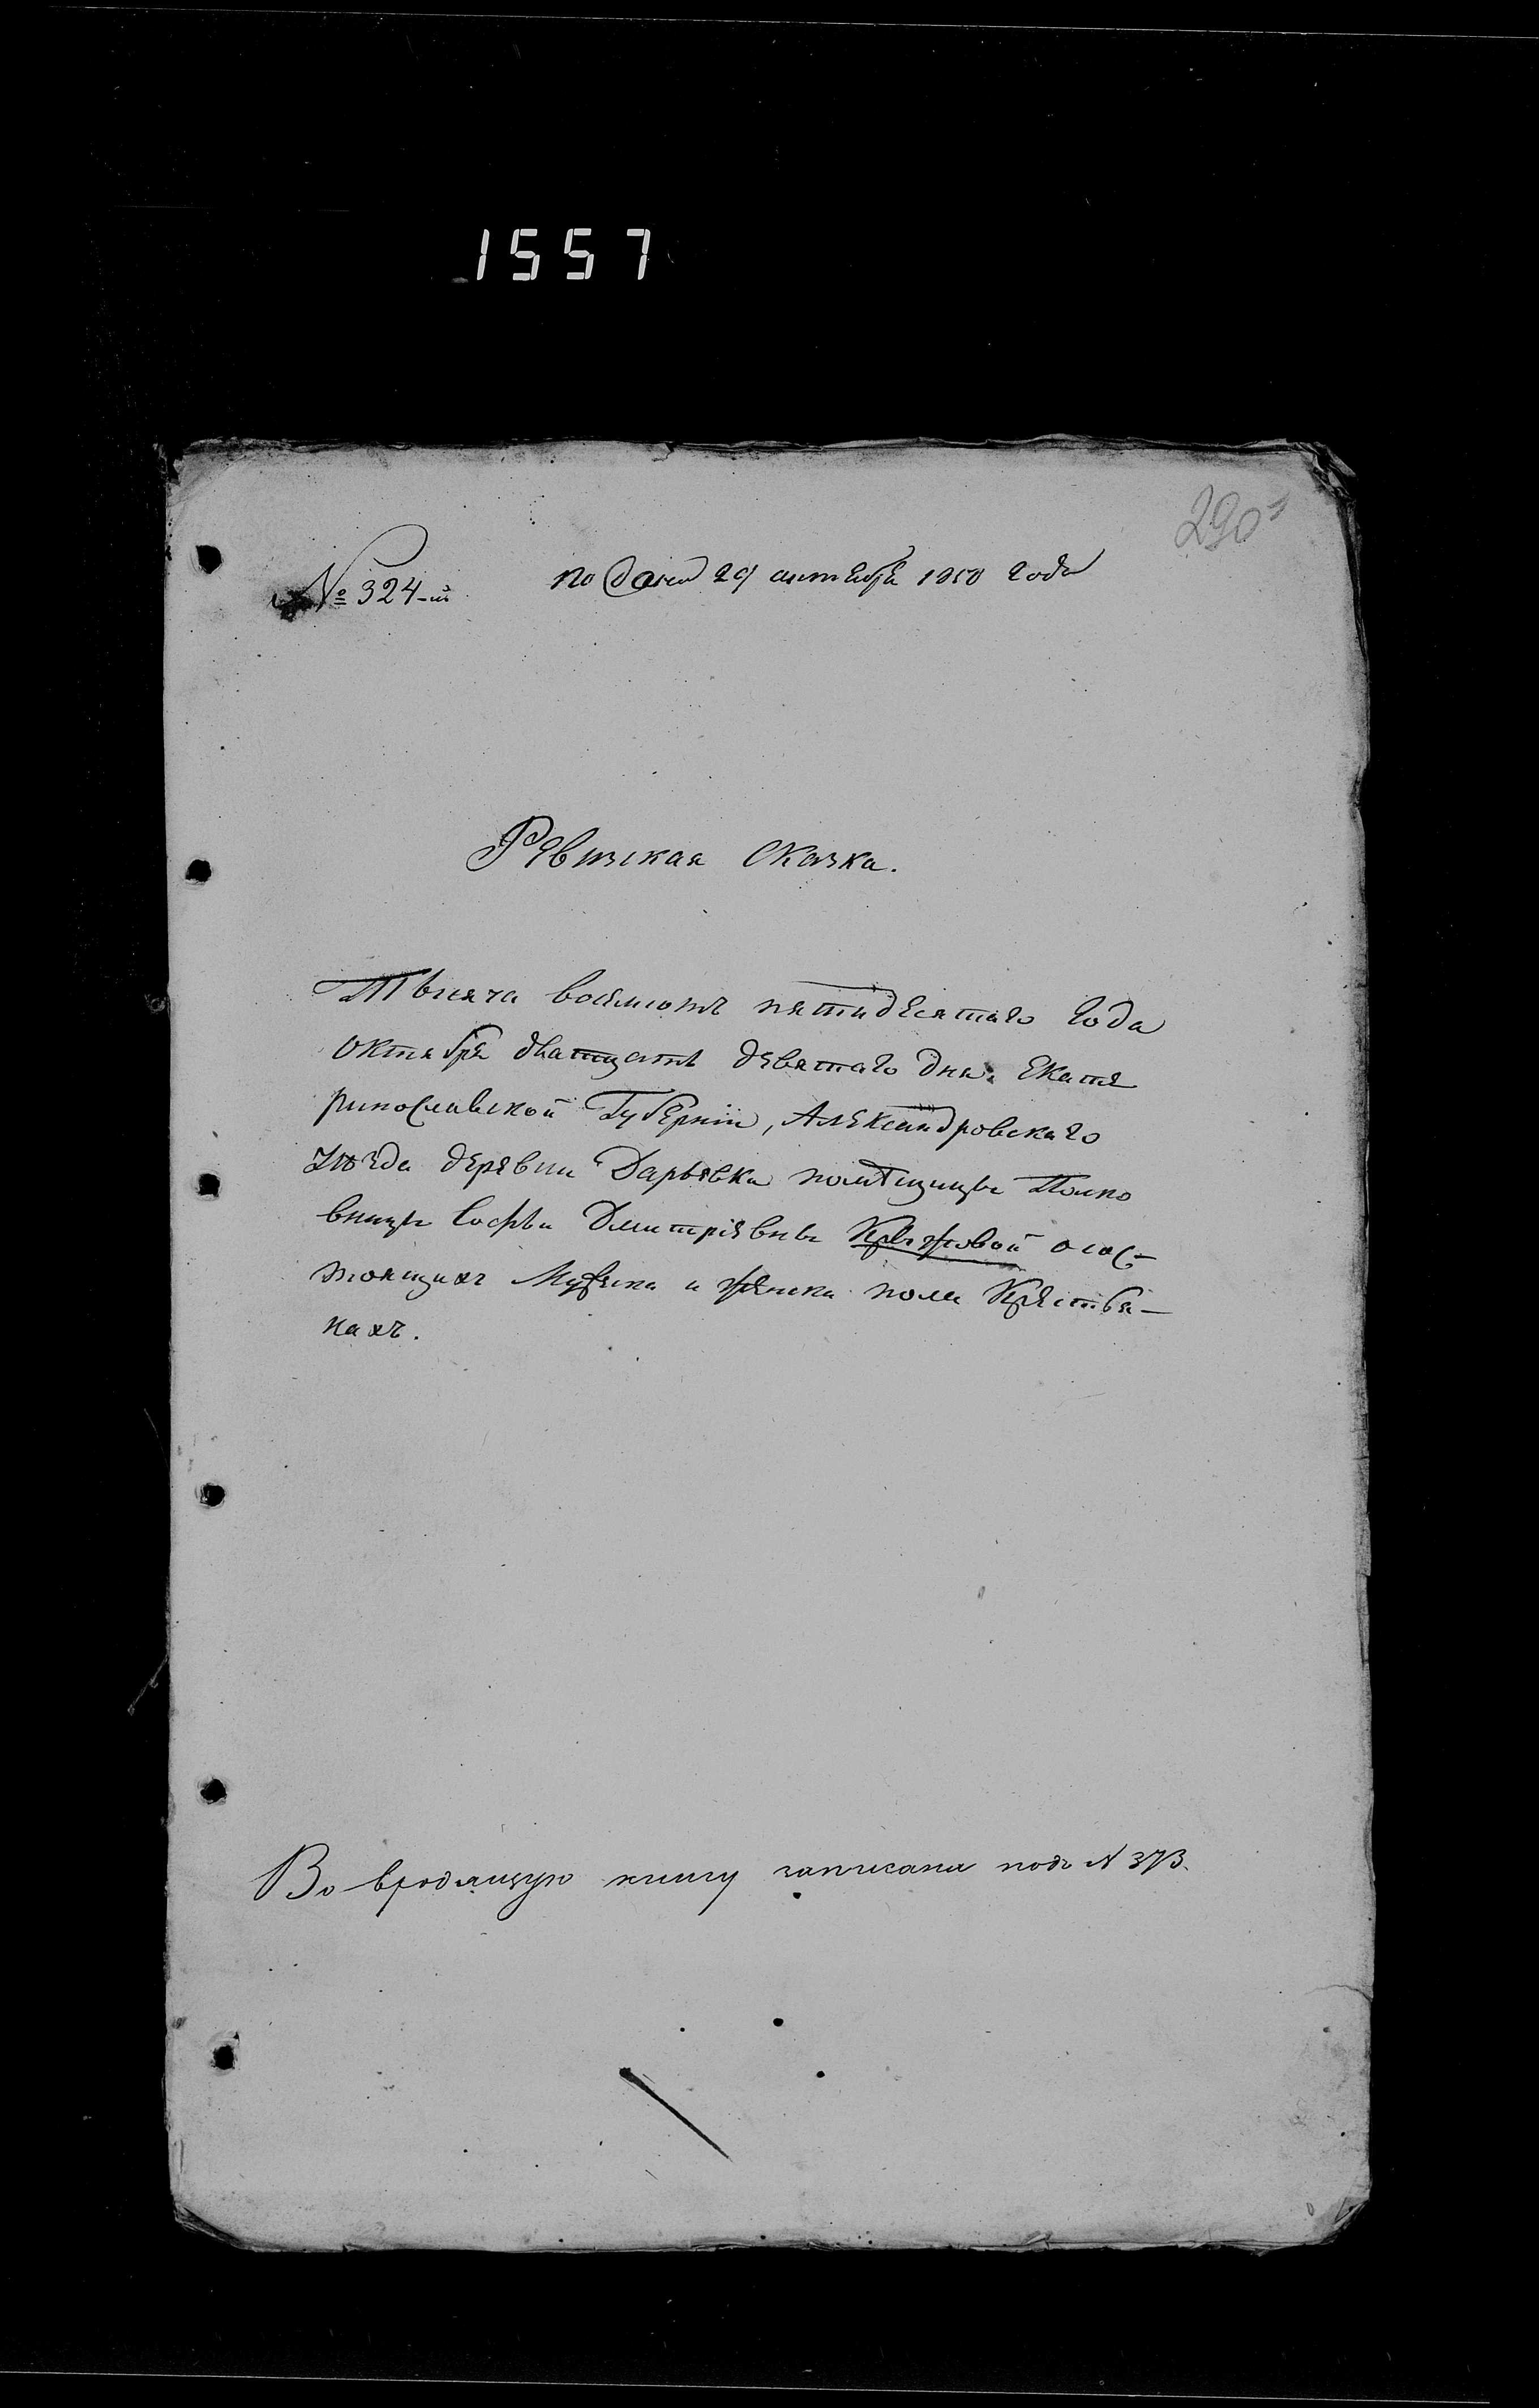 1557
290
№ 324-й
подана 29 октября 1850 года
Ревизская Сказка.
Тысяча восемсотъ пятидесятаго Года
Октября дватцать девятаго дня. Екате
ринославской Губерніи, Александровскаго
Уѣзда деревни Дарьевки помѣщицы Полко
вницы Софьи Дмитріевны осос-
тоящихъ Мужеска и женска пола Крестья-
нахъ.
Во входящую книгу записана подъ № 373.